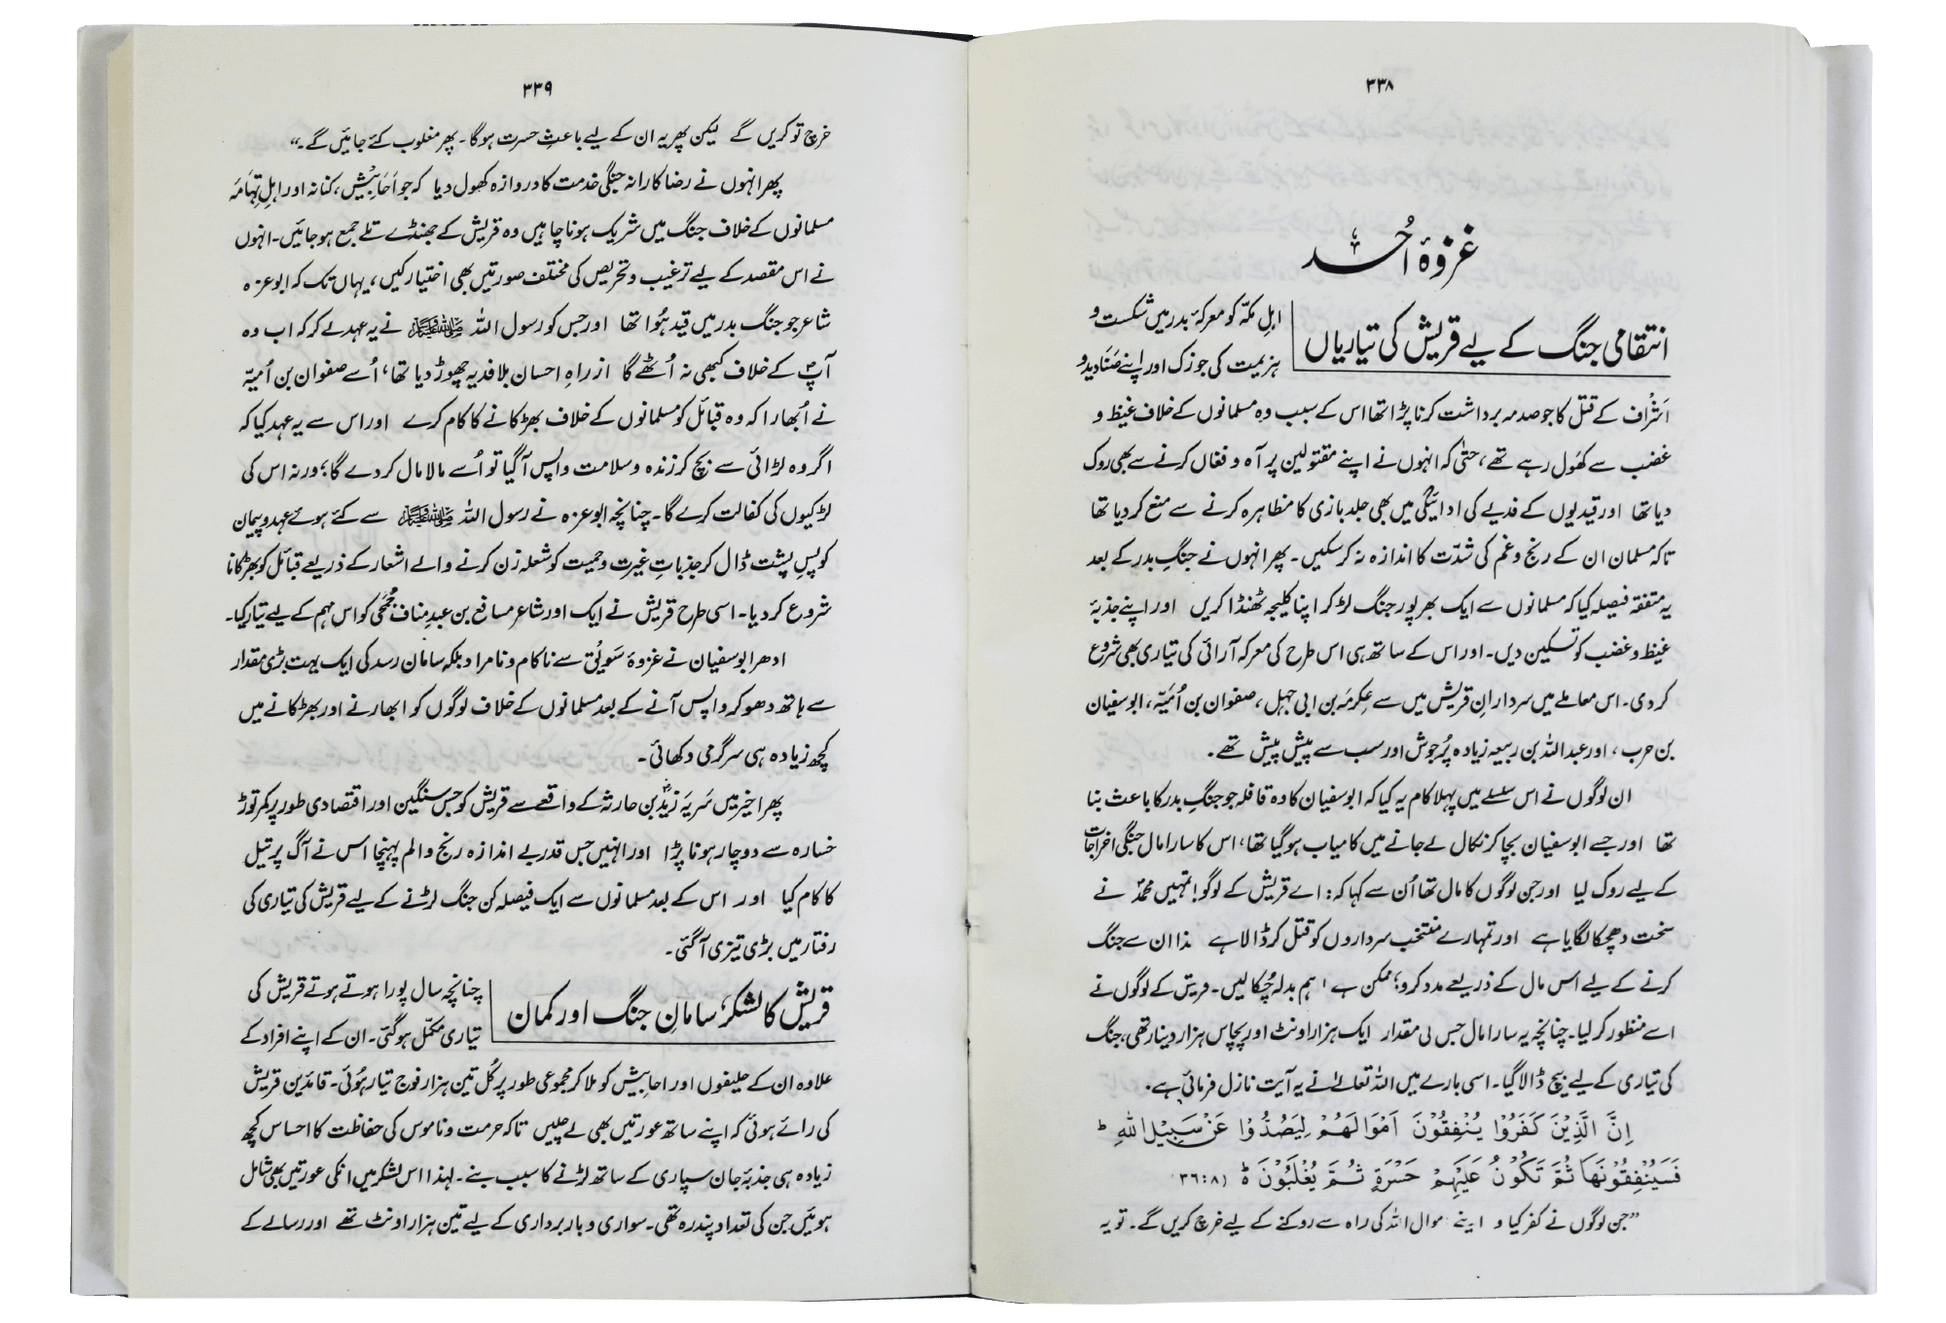 ۳۳۸
غزوۂ اُحد
انتقامی جنگ کے لیے قریش کی تیاریاں
اہلِ مکہّ کو معرکۂ بدر میں شکست و
ہزیمت کی جو زک اور اپنے صَنَادِید و
اَشراف کے قتل کا جو صدمہ برداشت کرنا پڑا تھا اس کے سبب وہ مسلمانوں کے خلاف غیظ و
غضب سے کھَول رہے تھے، حتٰی کہ انہوں نے اپنے مقتولین پر آہ و فغاں کرنے سے بھی روک
دیا تھا اور قیدیوں کے فدیے کی ادائیگی میں بھی جلد بازی کا مظاہرہ کرنے سے منع کر دیا تھا
تاکہ مسلمان ان کے رنج و غم کی شدّت کا اندازہ نہ کر سکیں۔ پھر انہوں نے جنگِ بدر کے بعد
یہ متفقہ فیصلہ کیا کہ مسلمانوں سے ایک بھرپور جنگ لڑ کر اپنا کلیجہ ٹھنڈا کریں اور اپنے جذبۂ
غیظ و غضب کو تسکین دیں۔ اور اس کے ساتھ ہی اس طرح کی معرکہ آرائی کی تیاری بھی شروع
کر دی۔ اس معاملے میں سردارانِ قریش میں سے عِکرمَہ بن ابی جہل، صفوان بن اُمَیّہ، ابو سفیان
بن حرب، اور عبداللہ بن ربیعہ زیادہ پُرجوش اور سب سے پیش پیش تھے۔
ان لوگوں نے اس سلسلے میں پہلا کام یہ کیا کہ ابو سفیان کا وہ قافلہ جو جنگِ بدر کا باعث بنا
تھا اور جسے ابو سفیان بچا کر نکال لے جانے میں کامیاب ہو گیا تھا، اس کا سارا مال جنگی اخراجات
کے لیے روک لیا اور جن لوگوں کا مال تھا اُن سے کہا کہ: اے قریش کے لوگو! تمہیں محمدؐ نے
سخت دھچکا لگایا ہے اور تمہارے منتخب سرداروں کو قتل کر ڈالا ہے ہذا ان سے جنگ
کرنے کے لیے اس مال کے ذریعے مدد کرو؛ ممکن ہے ہم بدلہ چُکا لیں۔ قریش کے لوگوں نے
اسے منظور کر لیا۔ چنانچہ یہ سارا مال جس کی مقدار ایک ہزار اونٹ اور پچاس ہزار دینار تھی، جنگ
کی تیاری کے لیے بیچ ڈالا گیا۔ اسی بارے میں اللہ تعالےٰ نے یہ آیت نازل فرمائی ہے۔
اِنَّ الَّذِيْنَ كَفَرُوْا يُنْفِقُوْنَ اَمْوَالَهُمْ لِيَصُدُّوْا عَنْ سَبِيْلِ اللهِ ؕ
فَسَيُنْفِقُوْنَهَا ثُمَّ تَكُوْنُ عَلَيْهِمْ حَسْرَةً ثُمَّ يُغْلَبُوْنَ ؕ (۳۶:۸)
”جن لوگوں نے کفر کیا و اپنے موال اللہ کی راہ سے روکنے کے لیے خرچ کریں گے۔ تو یہ
۳۳۹
خرچ تو کریں گے لیکن پھر یہ ان کے لیے باعثِ حسرت ہوگا۔ پھر مغلوب کئے جائیں گے۔“
پھر انہوں نے رضاکارانہ جنگی خدمت کا دروازہ کھول دیا کہ جو اَحَابِیْش، کنانہ اور اہلِ تِہَامَہ
مسلمانوں کے خلاف جنگ میں شریک ہونا چاہیں وہ قریش کے جھنڈے تلے جمع ہو جائیں۔ انہوں
نے اس مقصد کے لیے ترغیب و تحریص کی مختلف صورتیں بھی اختیار کیں، یہاں تک کہ ابو عزہ
شاعر جو جنگ بدر میں قید ہُوا تھا اور جس کو رسول اللہ ﷺ نے یہ عہد لے کر کہ اب وہ
آپؐ کے خلاف کبھی نہ اُٹھے گا ازراہِ احسان بلا فدیہ چھوڑ دیا تھا، اُسے صفوان بن اُمیّہ
نے اُبھارا کہ وہ قبائل کو مسلمانوں کے خلاف بھڑکانے کا کام کرے اور اس سے یہ عہد کیا کہ
اگر وہ لڑائی سے بچ کر زندہ و سلامت واپس آ گیا تو اُسے مالا مال کر دے گا؛ ورنہ اس کی
لڑکیوں کی کفالت کرے گا۔ چنانچہ ابو عزہ نے رسول اللہ ﷺ سے کئے ہوئے عہد و پیمان
کو پسِ پشت ڈال کر جذباتِ غیرت و حمیت کو شعلہ زن کرنے والے اشعار کے ذریعے قبائل کو بھڑکانا
شروع کر دیا۔ اسی طرح قریش نے ایک اور شاعر مسافع بن عبدِ مناف جُمَحِی کو اس مہم کے لیے تیار کیا۔
ادھر ابو سفیان نے غزوۂ سَوِیْق سے ناکام و نامراد بلکہ سامان رسد کی ایک بہت بڑی مقدار
سے ہاتھ دھو کر واپس آنے کے بعد مسلمانوں کے خلاف لوگوں کو ابھارنے اور بھڑکانے میں
کچھ زیادہ ہی سرگرمی دکھائی۔
پھر اخیر میں سَرِیَہ زیدؓ بن حارثہ کے واقعے سے قریش کو جس سنگین اور اقتصادی طور پر کمر توڑ
خسارہ سے دوچار ہونا پڑا اور انہیں جس قدر بے اندازہ رنج و الم پہنچا اس نے آگ پر تیل
کا کام کیا اور اس کے بعد مسلمانوں سے ایک فیصلہ کن جنگ لڑنے کے لیے قریش کی تیاری کی
رفتار میں بڑی تیزی آ گئی۔
قریش کا لشکر، سامانِ جنگ اور کمان
چنانچہ سال پورا ہوتے ہوتے قریش کی
تیاری مکمّل ہو گئی۔ ان کے اپنے افراد کے
علاوہ ان کے حلیفوں اور احابِیش کو ملا کر مجموعی طور پر کُل تین ہزار فوج تیار ہُوئی۔ قائدین قریش
کی رائے ہوئی کہ اپنے ساتھ عورتیں بھی لے چلیں تاکہ حرمت و ناموس کی حفاظت کا احساس کچھ
زیادہ ہی جذبۂ جان سپاری کے ساتھ لڑنے کا سبب بنے۔ لہذا اس لشکر میں انکی عورتیں بھی شامل
ہوئیں جن کی تعداد پندرہ تھی۔ سواری و بار برداری کے لیے تین ہزار اونٹ تھے اور رسالے کے